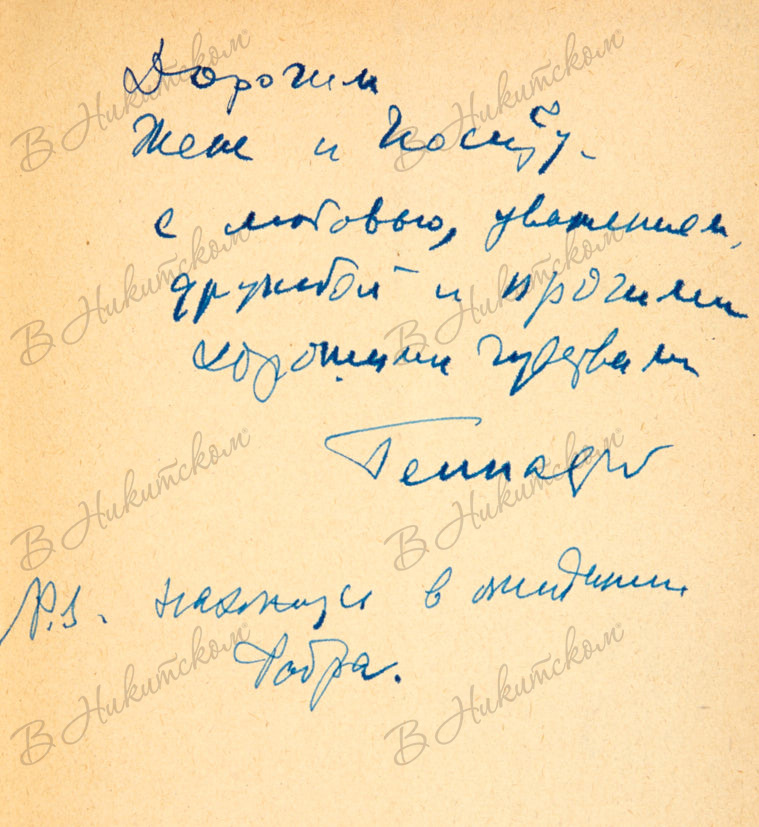 Дорогим
Жене и Косту.
с любовью, уважением,
дружбой и прочими
хорошими чувствами
Геннадий
P.S. нахожусь в ожидании
Добра.
В Никитском
В Никитском
В Никитском
В Никитском
В Никитском
В Никитском
В Никитском
В Никитском